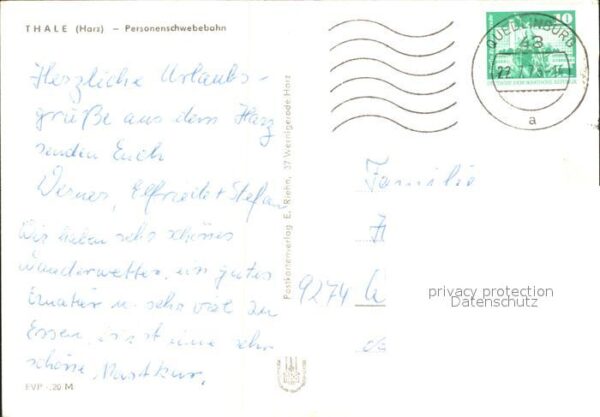 THALE (Harz) – Personenschwebebahn
Herzliche Urlaubs-
grüße aus dem Harz
senden Euch
Werner, Elfriede + Stefan
Wir haben sehr schönes
Wanderwetter, ein gutes
Quartier u. sehr viel zu
Essen, ist eine sehr
schöne
EVP -,20 M
Postkartenverlag E. Riehn, 37 Wernigerode Harz
10
QUEDLINBURG
43
a
Familie
9274
privacy protection
Datenschutz